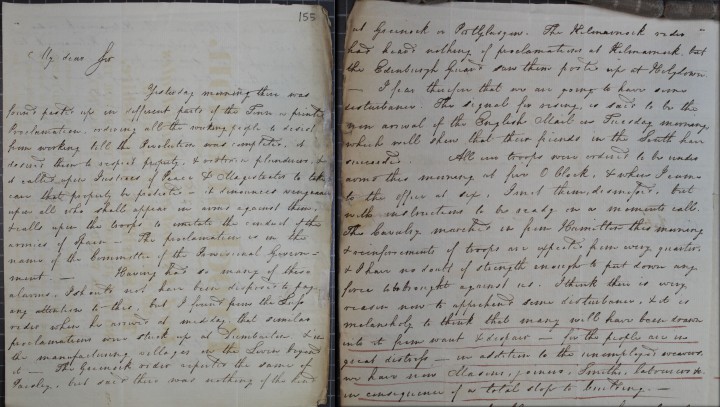 155
My dear Sir
Yesterday morning there was
found posted up in different parts of the Town a printed
Proclamation, ordering all the working people to desist
from working till the Revolution was completed, it
desired them to respect property, & restrain plunderers, &
it called upon Justices of Peace & Magistrates to take
care that property be protected – it denounces vengeance
upon all who shall appear in arms against them,
& calls upon the troops to imitate the conduct of the
armies of Spain – The proclamation is in the
name of the Committee of the Provisional Govern-
ment. – Having had so many of these
alarms, I should not have been disposed to pay
any attention to this, but I found from the
rider when he arrived at midday that similar
proclamations were stuck up at Dumbarton & in
the manufacturing villages in the Leven beyond
it – The Greenock rider reported the same of
Paisley, but said there was nothing of the kind
at Greenock or Port Glasgow. The Kilmarnock rider
had heard nothing of proclamations at Kilmarnock, but
the Edinburgh Guard saw them posted up at Holytown
– I fear therefore that we are going to have some
disturbance. The signal for rising is said to be the
non arrival of the English Mail on Tuesday morning
which will shew that their friends in the South have
succeeded. All our troops were ordered to be under
arms this morning at five O'Clock, & when I came
to the office at six, I met them dismissed, but
with instructions to be ready on a moments call.
The Cavalry marched in from Hamilton this morning
& reinforcements of troops are expected from every quarter,
& I have no doubt of strength enough to put down any
force to be brought against us. I think there is every
reason now to apprehend some disturbance, & it is
melancholy to think that many will have been drawn
into it from want & despair – for the people are in
great distress – in addition to the unemployed weavers,
we have now Masons, joiners, Smiths, labourers &c
in consequence of a total stop to building. –